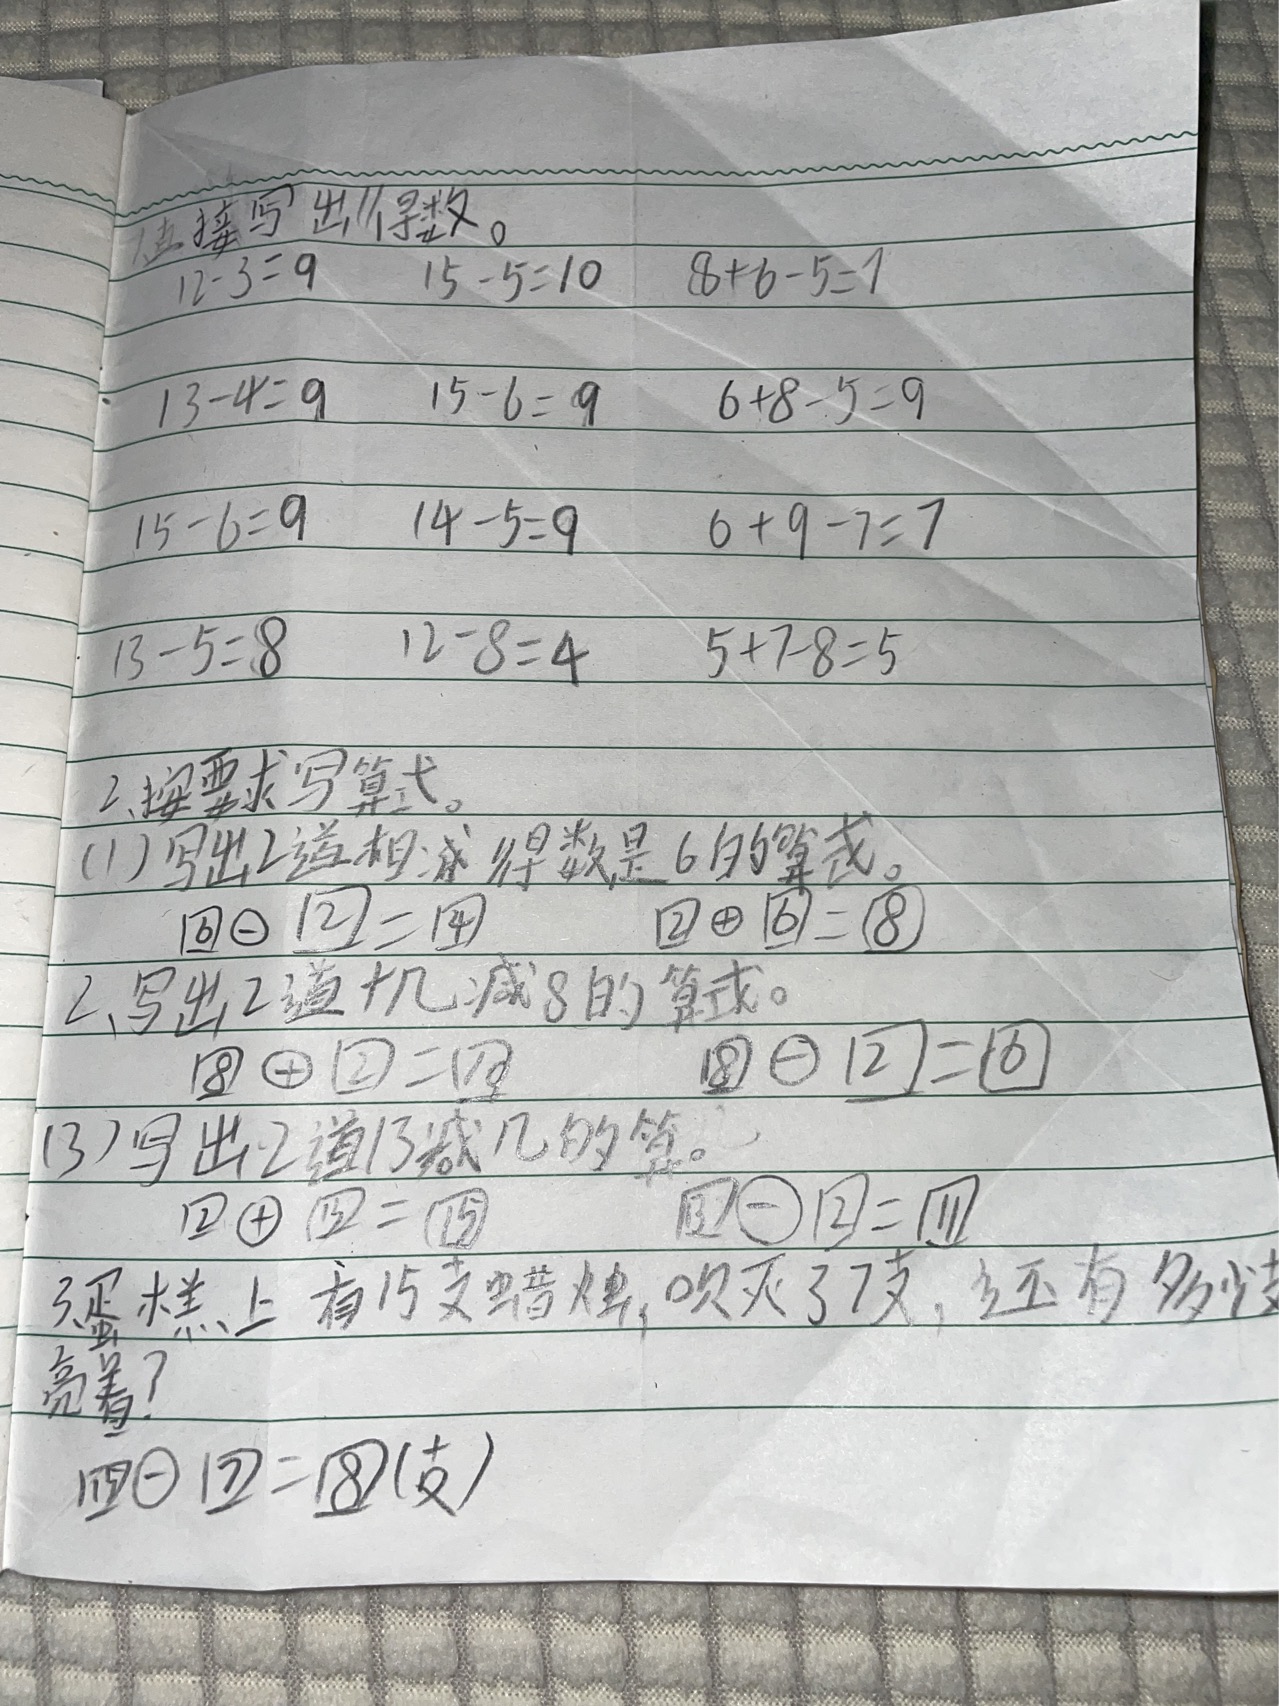 1.直接写出得数。
12-3=9 15-5=10 8+6-5=7
13-4=9 15-6=9 6+8-5=9
15-6=9 14-5=9 6+9-7=7
13-5=8 12-8=4 5+7-8=5
2、按要求写算式。
(1)写出2道相减得数是6的算式。
6-2=4 2+6=8
2、写出2道十几减8的算式。
8+2=10 8-2=6
(3)写出2道13减几的算。
2+13=15 13-2=11
3、蛋糕上有15支蜡烛,吹灭了7支,还有多少支
亮着?
15-7=8(支)